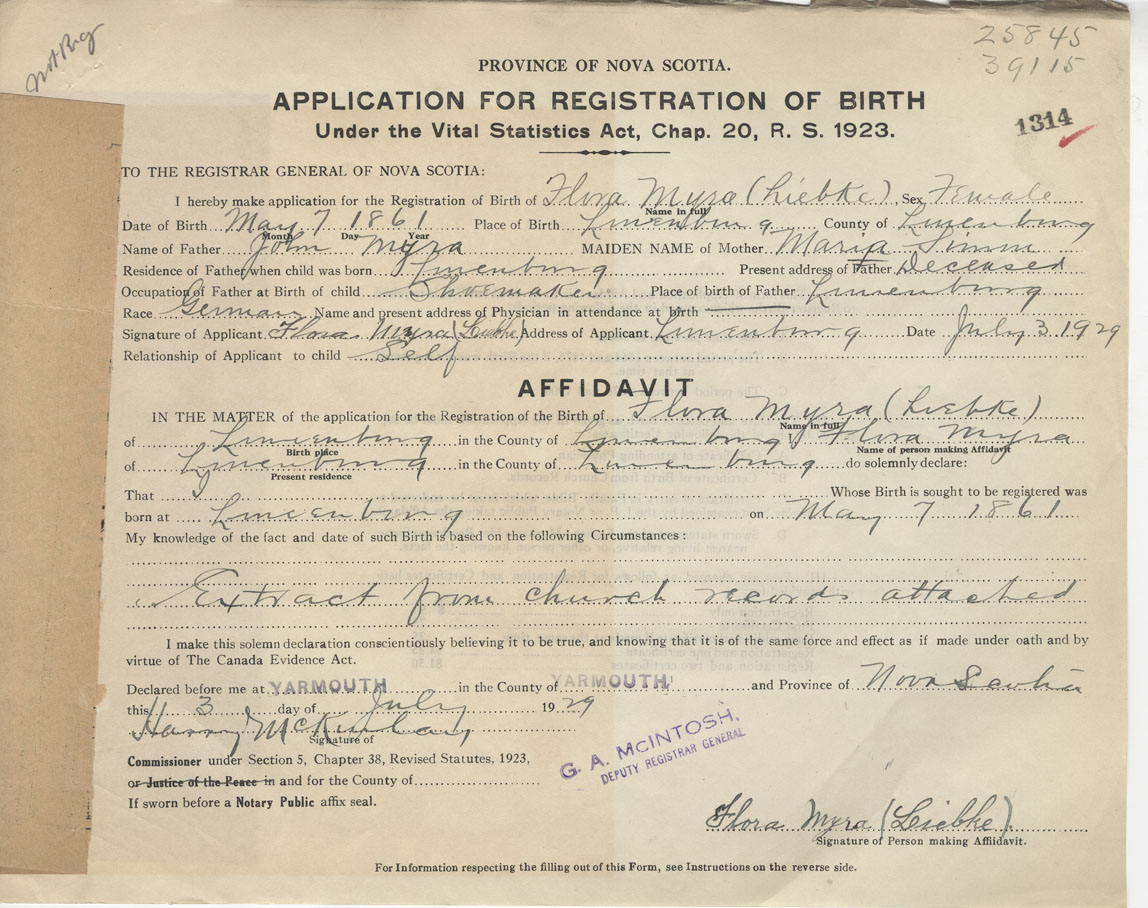 Not Reg
25845
39115
PROVINCE OF NOVA SCOTIA.
APPLICATION FOR REGISTRATION OF BIRTH
Under the Vital Statistics Act, Chap. 20, R. S. 1923.
1314
TO THE REGISTRAR GENERAL OF NOVA SCOTIA:
I hereby make application for the Registration of Birth of Flora Myra (Liebke) Sex Female
Name in full
Date of Birth May 7 1861 Place of Birth Lunenburg County of Lunenburg
Month Day Year
Name of Father John Myra MAIDEN NAME of Mother Maria Simm
Residence of Father when child was born Lunenburg Present address of Father Deceased
Occupation of Father at Birth of child Shoemaker Place of birth of Father Lunenburg
Race German Name and present address of Physician in attendance at birth
Signature of Applicant Flora Myra (Liebke) Address of Applicant Lunenburg Date July 3 1929
Relationship of Applicant to child Self
AFFIDAVIT
IN THE MATTER of the application for the Registration of the Birth of Flora Myra (Liebke)
Name in full
of Lunenburg in the County of Lunenburg I, Flora Myra
Birth place Name of person making Affidavit
of Lunenburg in the County of Lunenburg do solemnly declare:
Present residence
That I Whose Birth is sought to be registered was
born at Lunenburg on May 7 1861
My knowledge of the fact and date of such Birth is based on the following Circumstances:
Extract from church records attached
I make this solemn declaration conscientiously believing it to be true, and knowing that it is of the same force and effect as if made under oath and by
virtue of The Canada Evidence Act.
Declared before me at YARMOUTH in the County of YARMOUTH and Province of Nova Scotia
this 3 day of July 1929
Harry McKinlay
Signature of
G. A. McINTOSH,
DEPUTY REGISTRAR GENERAL
Commissioner under Section 5, Chapter 38, Revised Statutes, 1923,
or Justice of the Peace in and for the County of
If sworn before a Notary Public affix seal.
Flora Myra (Liebke)
Signature of Person making Affidavit.
For Information respecting the filling out of this Form, see Instructions on the reverse side.